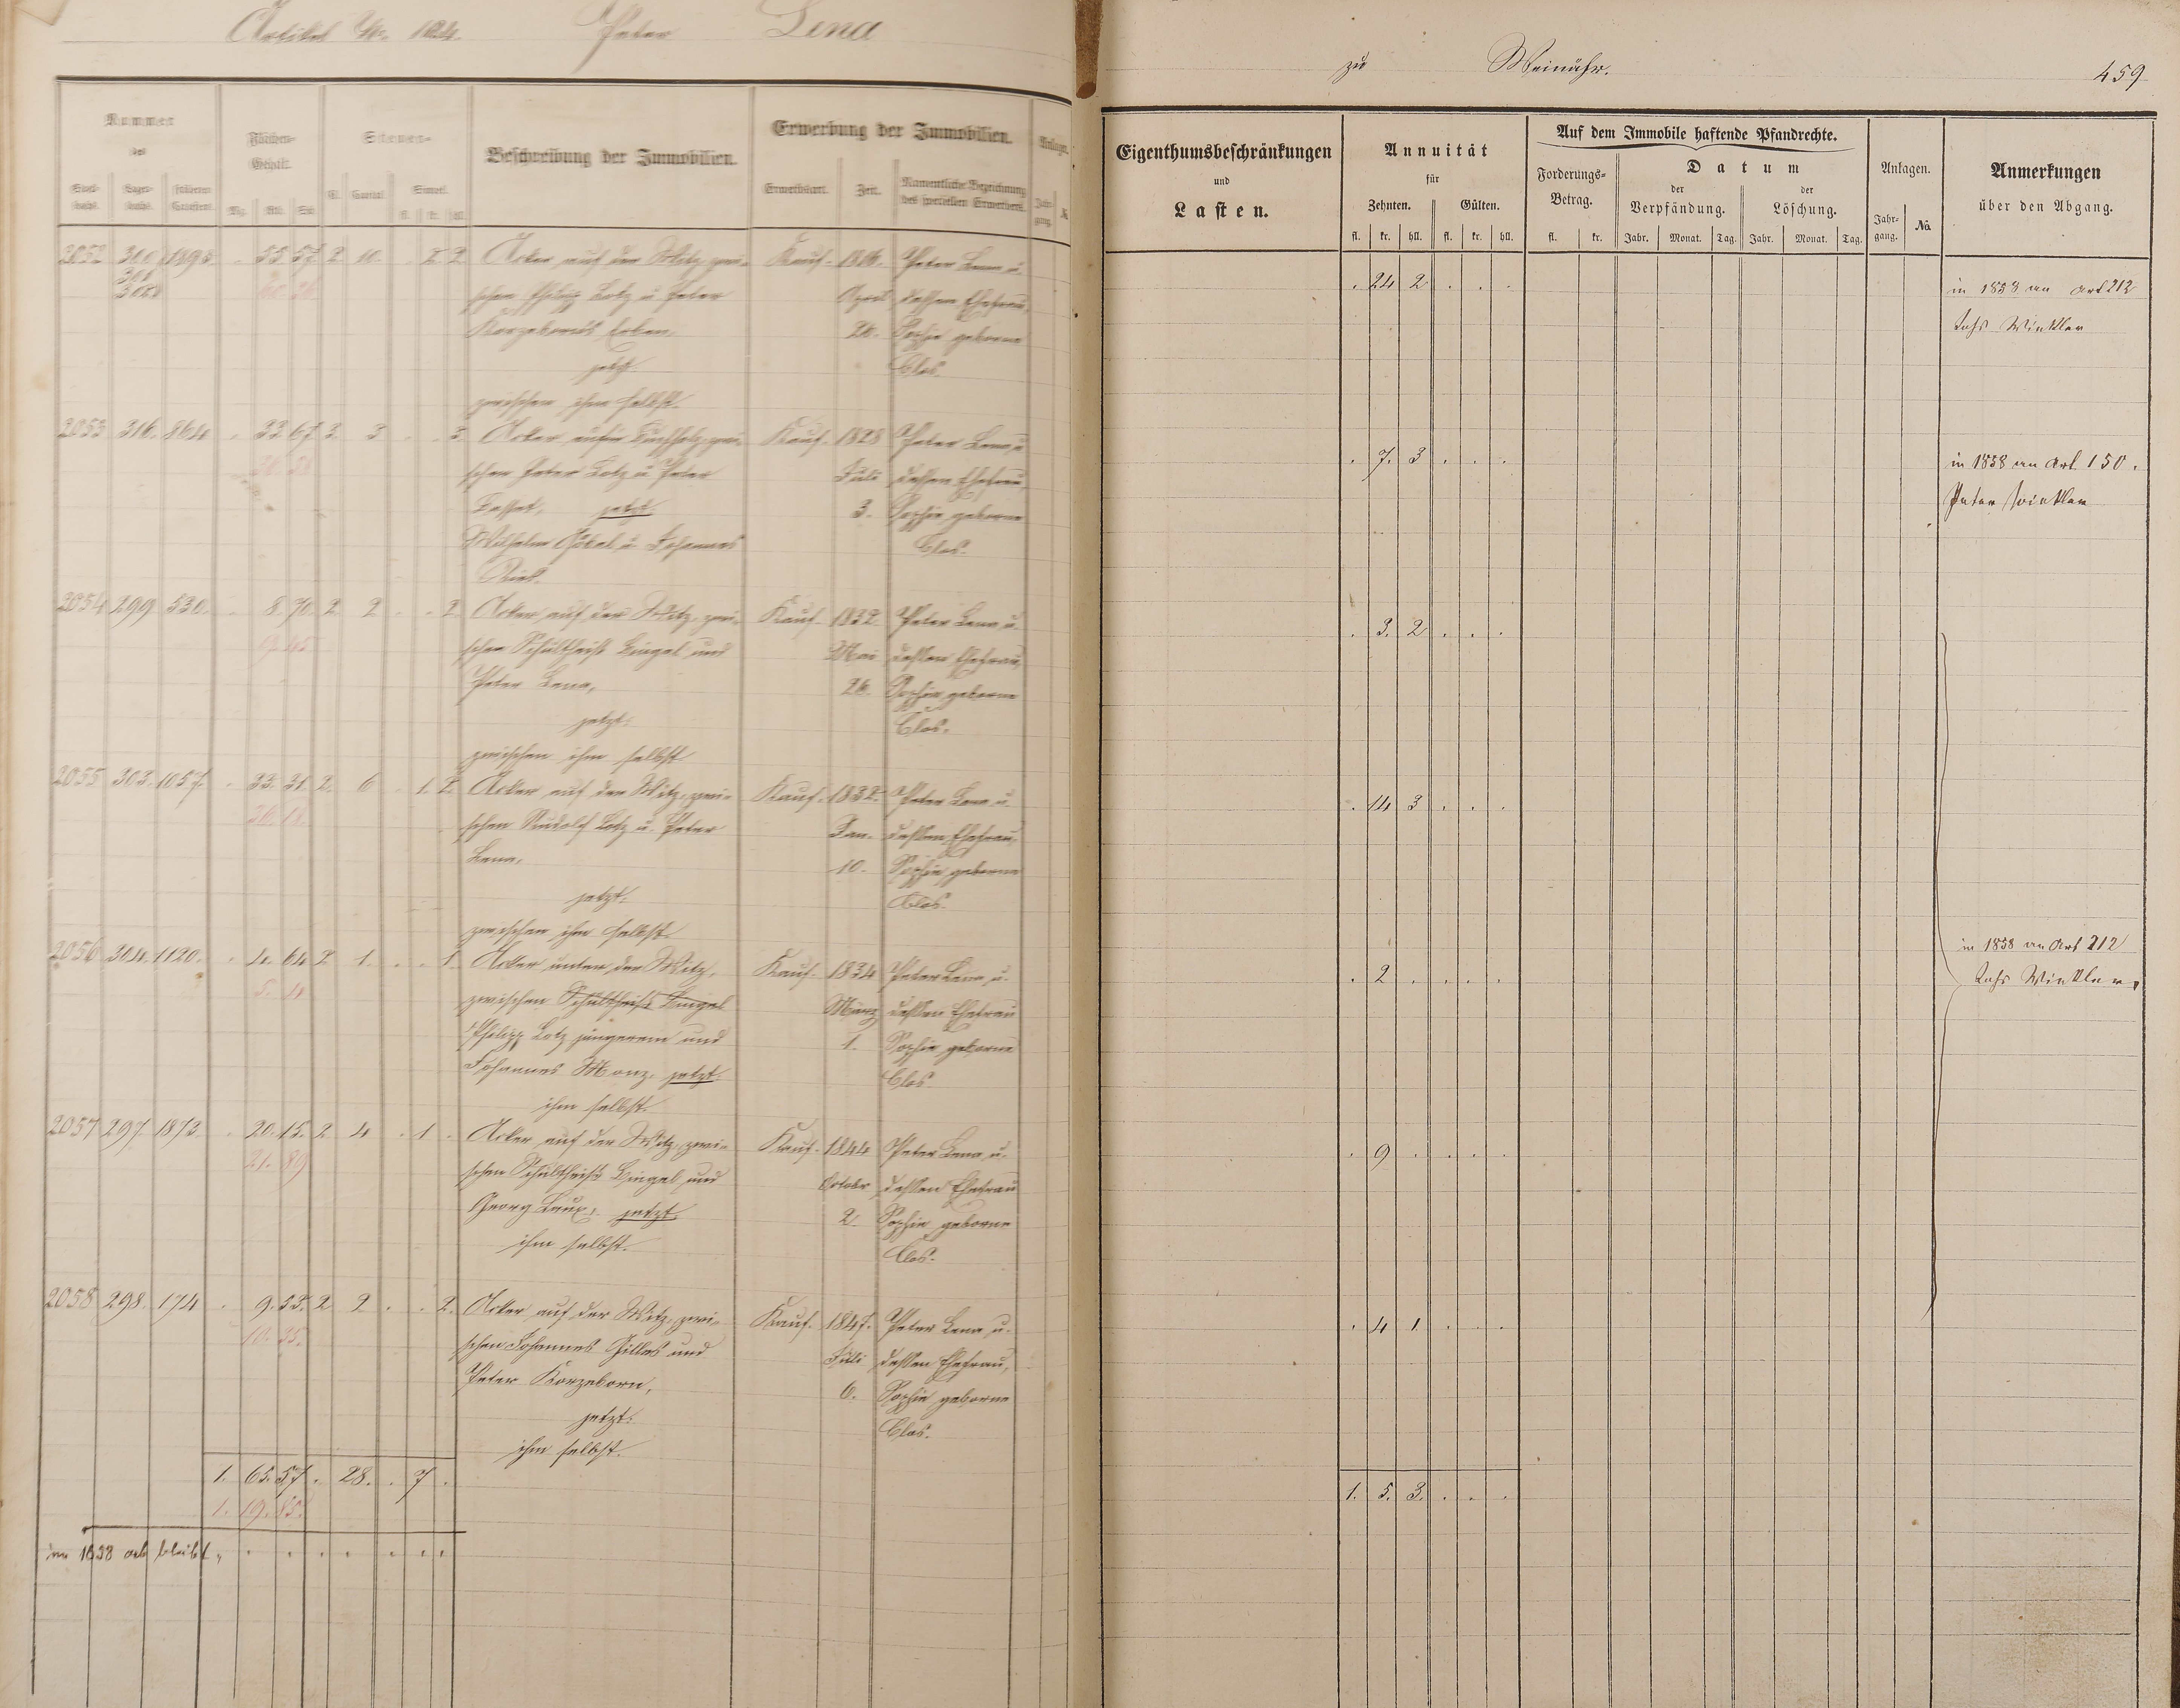 Artikel No. 124. Peter Lena
Nummer
des
Stock-
buchs.
Lager-
buchs.
früheren
Flächen-
Gehalt.
Mg. Rth. Sch.
Steuer-
Kl. Capital. Simpel.
fl. kr. hll.
Beschreibung der Immobilien.
Erwerbung der Immobilien.
Erwerbsart. Zeit. Namentliche Bezeichnung
des speciellen Erwerbers.
Anlage.
Jahr-
gang.
2052 300 1898 . 55 57. 2. 10. . 2. 2. Acker auf der Witz, zwi- Kauf. 1816. Peter Lena u.
301
schen Philipp Lotz u. Peter April dessen Ehefrau,
Korzeborns Erben, 24. Sophie geborne
jetzt: Clos.
zwischen ihm selbst.
2053 316. 864. . 33 67. 3. 3 . . 3. Acker aufm Buchholz, zwi- Kauf. 1828 Peter Lena u.
schen Peter Lotz u. Peter Juli dessen Ehefrau,
jetzt: 3. Sophie geborne
Wilhelm Göbel u. Johannes Clos.
2054 299 530. . 8. 70. 2. 2 . . 2. Acker auf der Witz, zwi- Kauf. 1832. Peter Lena u.
schen Schultheiß Bingel und Mai dessen Ehefrau,
Peter Lena, 26. Sophie geborne
jetzt: Clos.
zwischen ihm selbst
2055 303. 1057. . 33. 31. 2. 6 . 1. 2. Acker auf der Witz, zwi- Kauf. 1832. Peter Lena u.
36. 18. schen Rudolf Lotz u. Peter Jan. dessen Ehefrau,
Lena, 10. Sophie geborne
jetzt: Clos.
zwischen ihm selbst.
2056 304. 1120. . 4. 64 2. 1. . . 1. Acker unter der Witz, Kauf. 1834 Peter Lena u.
5. 4 zwischen Schultheiß Bingel März dessen Ehefrau
Philipp Lotz jüngerem und 1. Sophie geborne
Johannes Monz, jetzt: Clos
ihm selbst.
2057 297 1873. . 20. 15. 2 4 . 1 . Acker auf der Witz, zwi- Kauf. 1844 Peter Lena u.
21. 89 schen Schultheiß Bingel und October dessen Ehefrau
Georg Laux, jetzt: 2. Sophie geborne
ihm selbst. Clos.
2058 298. 174 . 9. 53. 2 2 . . 2. Acker auf der Witz, zwi- Kauf. 1847. Peter Lena u.
10. 35. schen Johannes Gilles und Juli dessen Ehefrau,
Peter Korzeborn, 6. Sophie geborne
jetzt: Clos.
ihm selbst.
1. 65. 57 . 28. . 7 .
1. 19. 85.
in 1858 ab bleibt „ . . . . . . .
zu Weinähr. 459
Eigenthumsbeschränkungen
und
Lasten.
Annuität
für
Zehnten. Gülten.
fl. kr. hll. fl. kr. hll.
Auf dem Immobile haftende Pfandrechte.
Forderungs-
Betrag.
fl. kr.
Datum
der
Verpfändung.
der
Löschung.
Jahr. Monat. Tag. Jahr. Monat. Tag.
Anlagen.
Jahr-
gang.
No.
Anmerkungen
über den Abgang.
. 24 2 . . . in 1858 an Art 212
Johs Winkler
. 7. 3 . . . in 1858 an Art. 150.
Peter Winkler
. 3. 2 . . .
. 14 3 . . .
in 1858 an Art 212
. 2 . . . . Johs Winkler,
. 9 . . . .
. 4 1. . . .
1. 5. 3. . . .